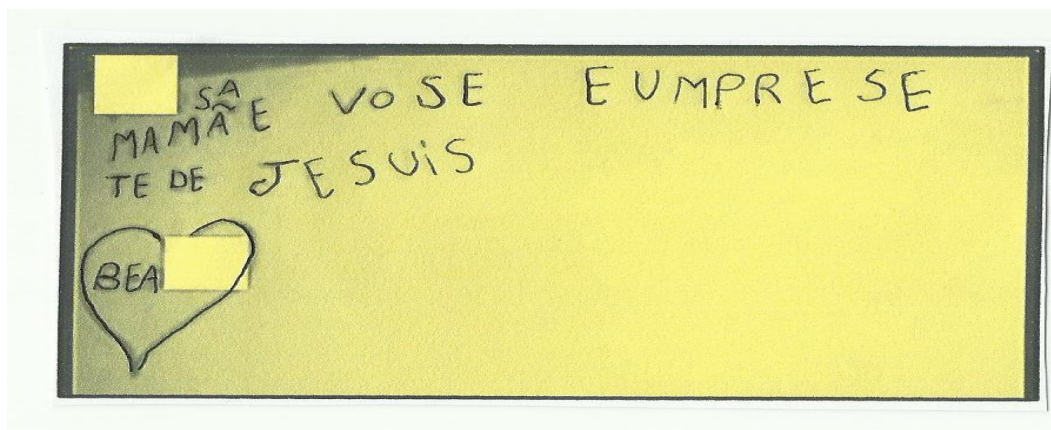 SA
MAMÃE VOSE EUMPRESE
TE DE JESUIS
BEA